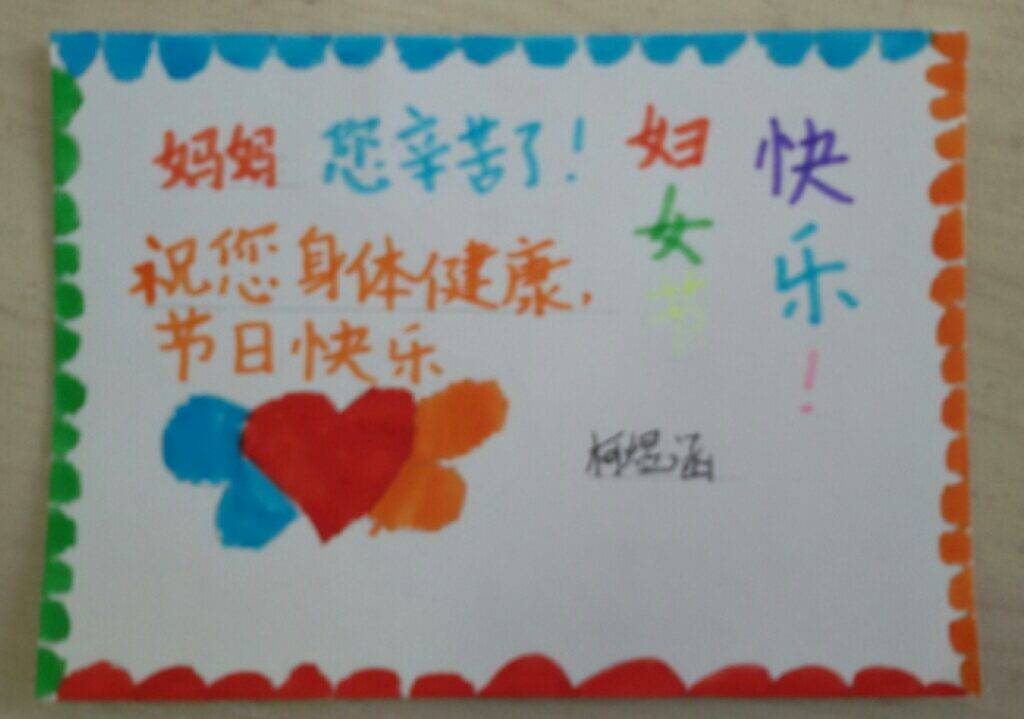 妈妈 您辛苦了!
祝您身体健康,
节日快乐
妇女节
快乐!
柯煜涵